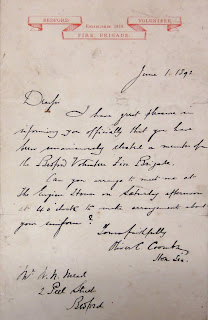 BEDFORD VOLUNTEER
FIRE BRIGADE
June 1. 1892
Dear Sir
I have great pleasure in
informing you officially that you have
been unanimously elected a member of
the Bedford Volunteer Fire Brigade.
Can you arrange to meet me at
the Engine House on Saturday afternoon
at 4 o'clock to make arrangement about
your uniform?
Yours faithfully
Hon Sec.
Mr W. N. Mead
2 Peel Street
Bedford